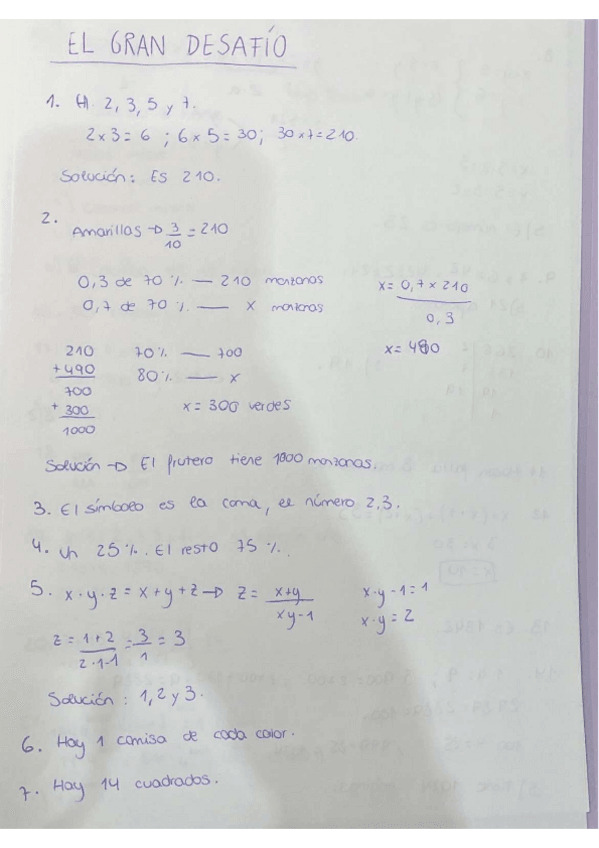 EL GRAN DESAFÍO
1. H 2, 3, 5 y 7.
2x3=6 ; 6x5=30; 30x7=210.
Solución: Es 210.
2.
Amarillas → 3/10 = 210
0,3 de 70 % — 210 manzanas
0,7 de 70 % — x manzanas
x = 0,7 x 210 / 0,3
x = 490
210
+490
700
+ 300
1000
70% — 700
80% — x
x = 300 verdes
Solución → El frutero tiene 1000 manzanas.
3. El símbolo es la coma, el número 2,3.
4. Un 25 %. El resto 75 %.
5. x·y·z = x+y+z → z = x+y / xy-1
x·y-1=1
x·y=2
z = 1+2 / 2·1-1 = 3/1 = 3
Solución: 1, 2 y 3.
6. Hay 1 camisa de cada color.
7. Hay 14 cuadrados.